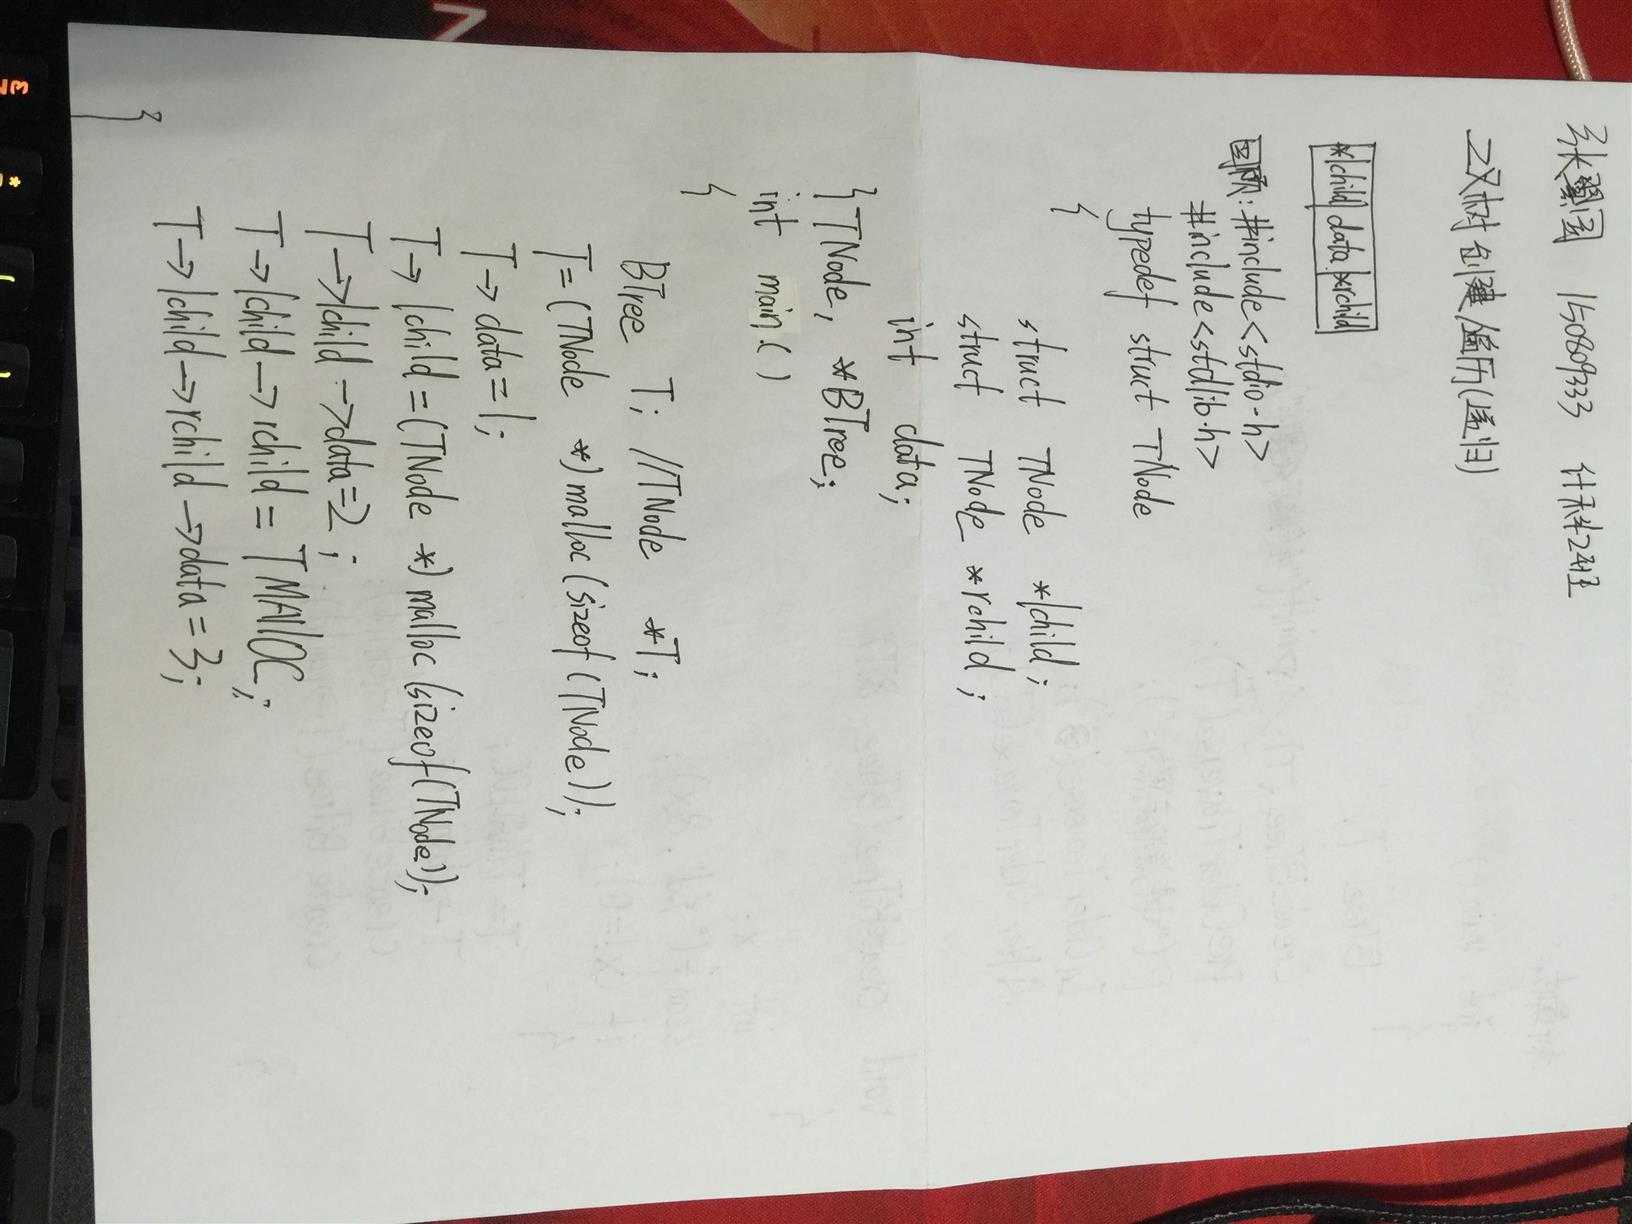 张 园 150809333 计本2班
二叉树创建/遍历(递归)
*lchild data *rchild
#include<stdio.h>
#include<stdlib.h>
typedef struct TNode
{
struct TNode *lchild;
struct TNode *rchild;
int data;
}TNode, *BTree;
int main()
{
BTree T; //TNode *T;
T=(TNode *)malloc(sizeof(TNode));
T→data=1;
T→lchild=(TNode *)malloc(sizeof(TNode));
T→lchild→data=2;
T→lchild→rchild= TMAllOC;
T→lchild→rchild→data=3;
}